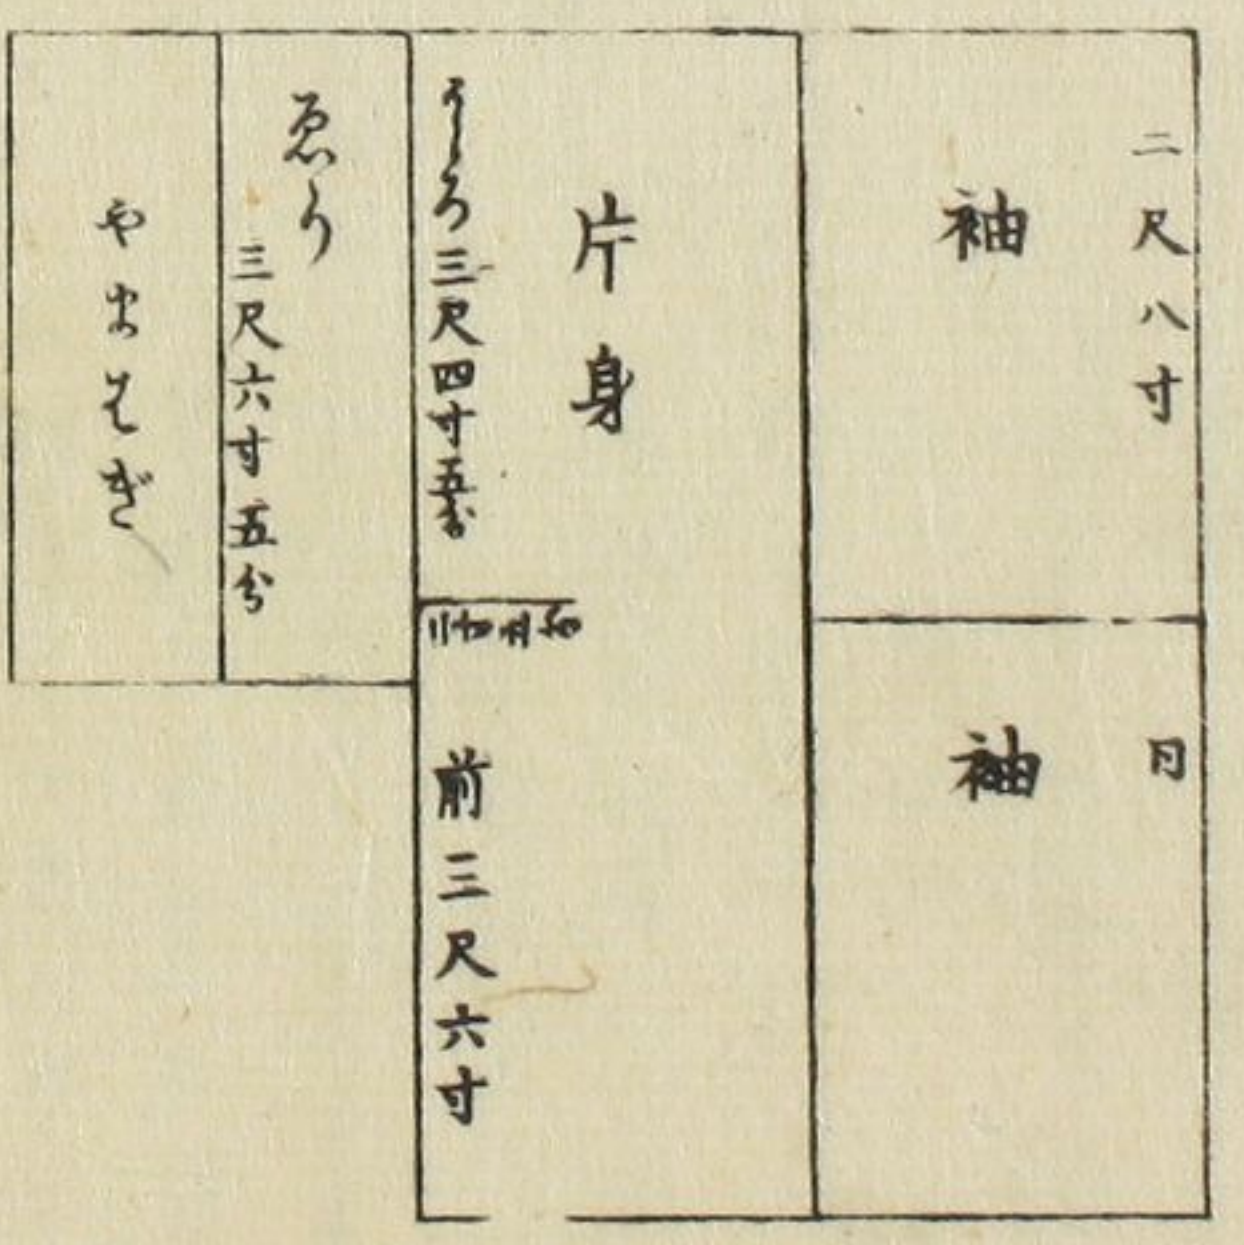 二尺八寸
袖
同
袖
片身
うしろ三尺四寸五分
前三尺六寸
ゑり
三尺六寸五分
やまはぎ